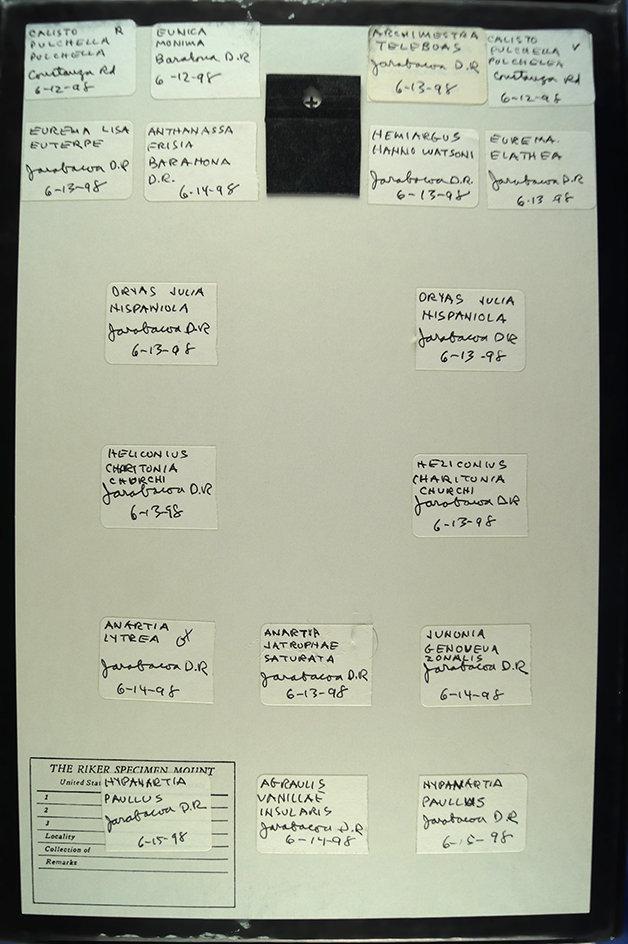 CALISTO R
PULCHELLA
PULCHELLA
Constanza Rd
6-12-98
EUNICA
MONIMA
Barahona D.R
6-12-98
ARCHIMESTRA
TELEBOAS
Jarabacoa D.R
6-13-98
CALISTO
PULCHELLA
PULCHELEA
Constanza Rd
6-12-98
EUREMA LISA
EUTERPE
Jarabacoa D.R
6-13-98
ANTHANASSA
FRISIA
BARAHONA
D.R.
6-14-98
HEMIARGUS
HANNO WATSONI
Jarabacoa D.R.
6-13-98
EUREMA
ELATHEA
Jarabacoa D.R
6-13-98
DRYAS JULIA
HISPANIOLA
Jarabacoa D.R
6-13-98
DRYAS JULIA
HISPANIOLA
Jarabacoa DR
6-13-98
HELICONIUS
CHARITONIA
CHURCHI
Jarabacoa D.R
6-13-98
HELICONIUS
CHARITONIA
CHURCHI
Jarabacoa D.R
6-13-98
ANARTIA
LYTREA ♂
Jarabacoa D.R
6-14-98
ANARTIA
JATROPHAE
SATURATA
Jarabacoa D.R
6-13-98
JUNONIA
GENOVEVA
ZONALIS
Jarabacoa D.R
6-14-98
THE RIKER SPECIMEN MOUNT
United
1
2
3
Locality
Collection of
Remarks
HYPANARTIA
PAULLUS
Jarabacoa D.R
6-15-98
AGRAULIS
VANILLAE
INSULARIS
Jarabacoa D.R
6-14-98
HYPANARTIA
PAULLUS
Jarabacoa D.R
6-15-98